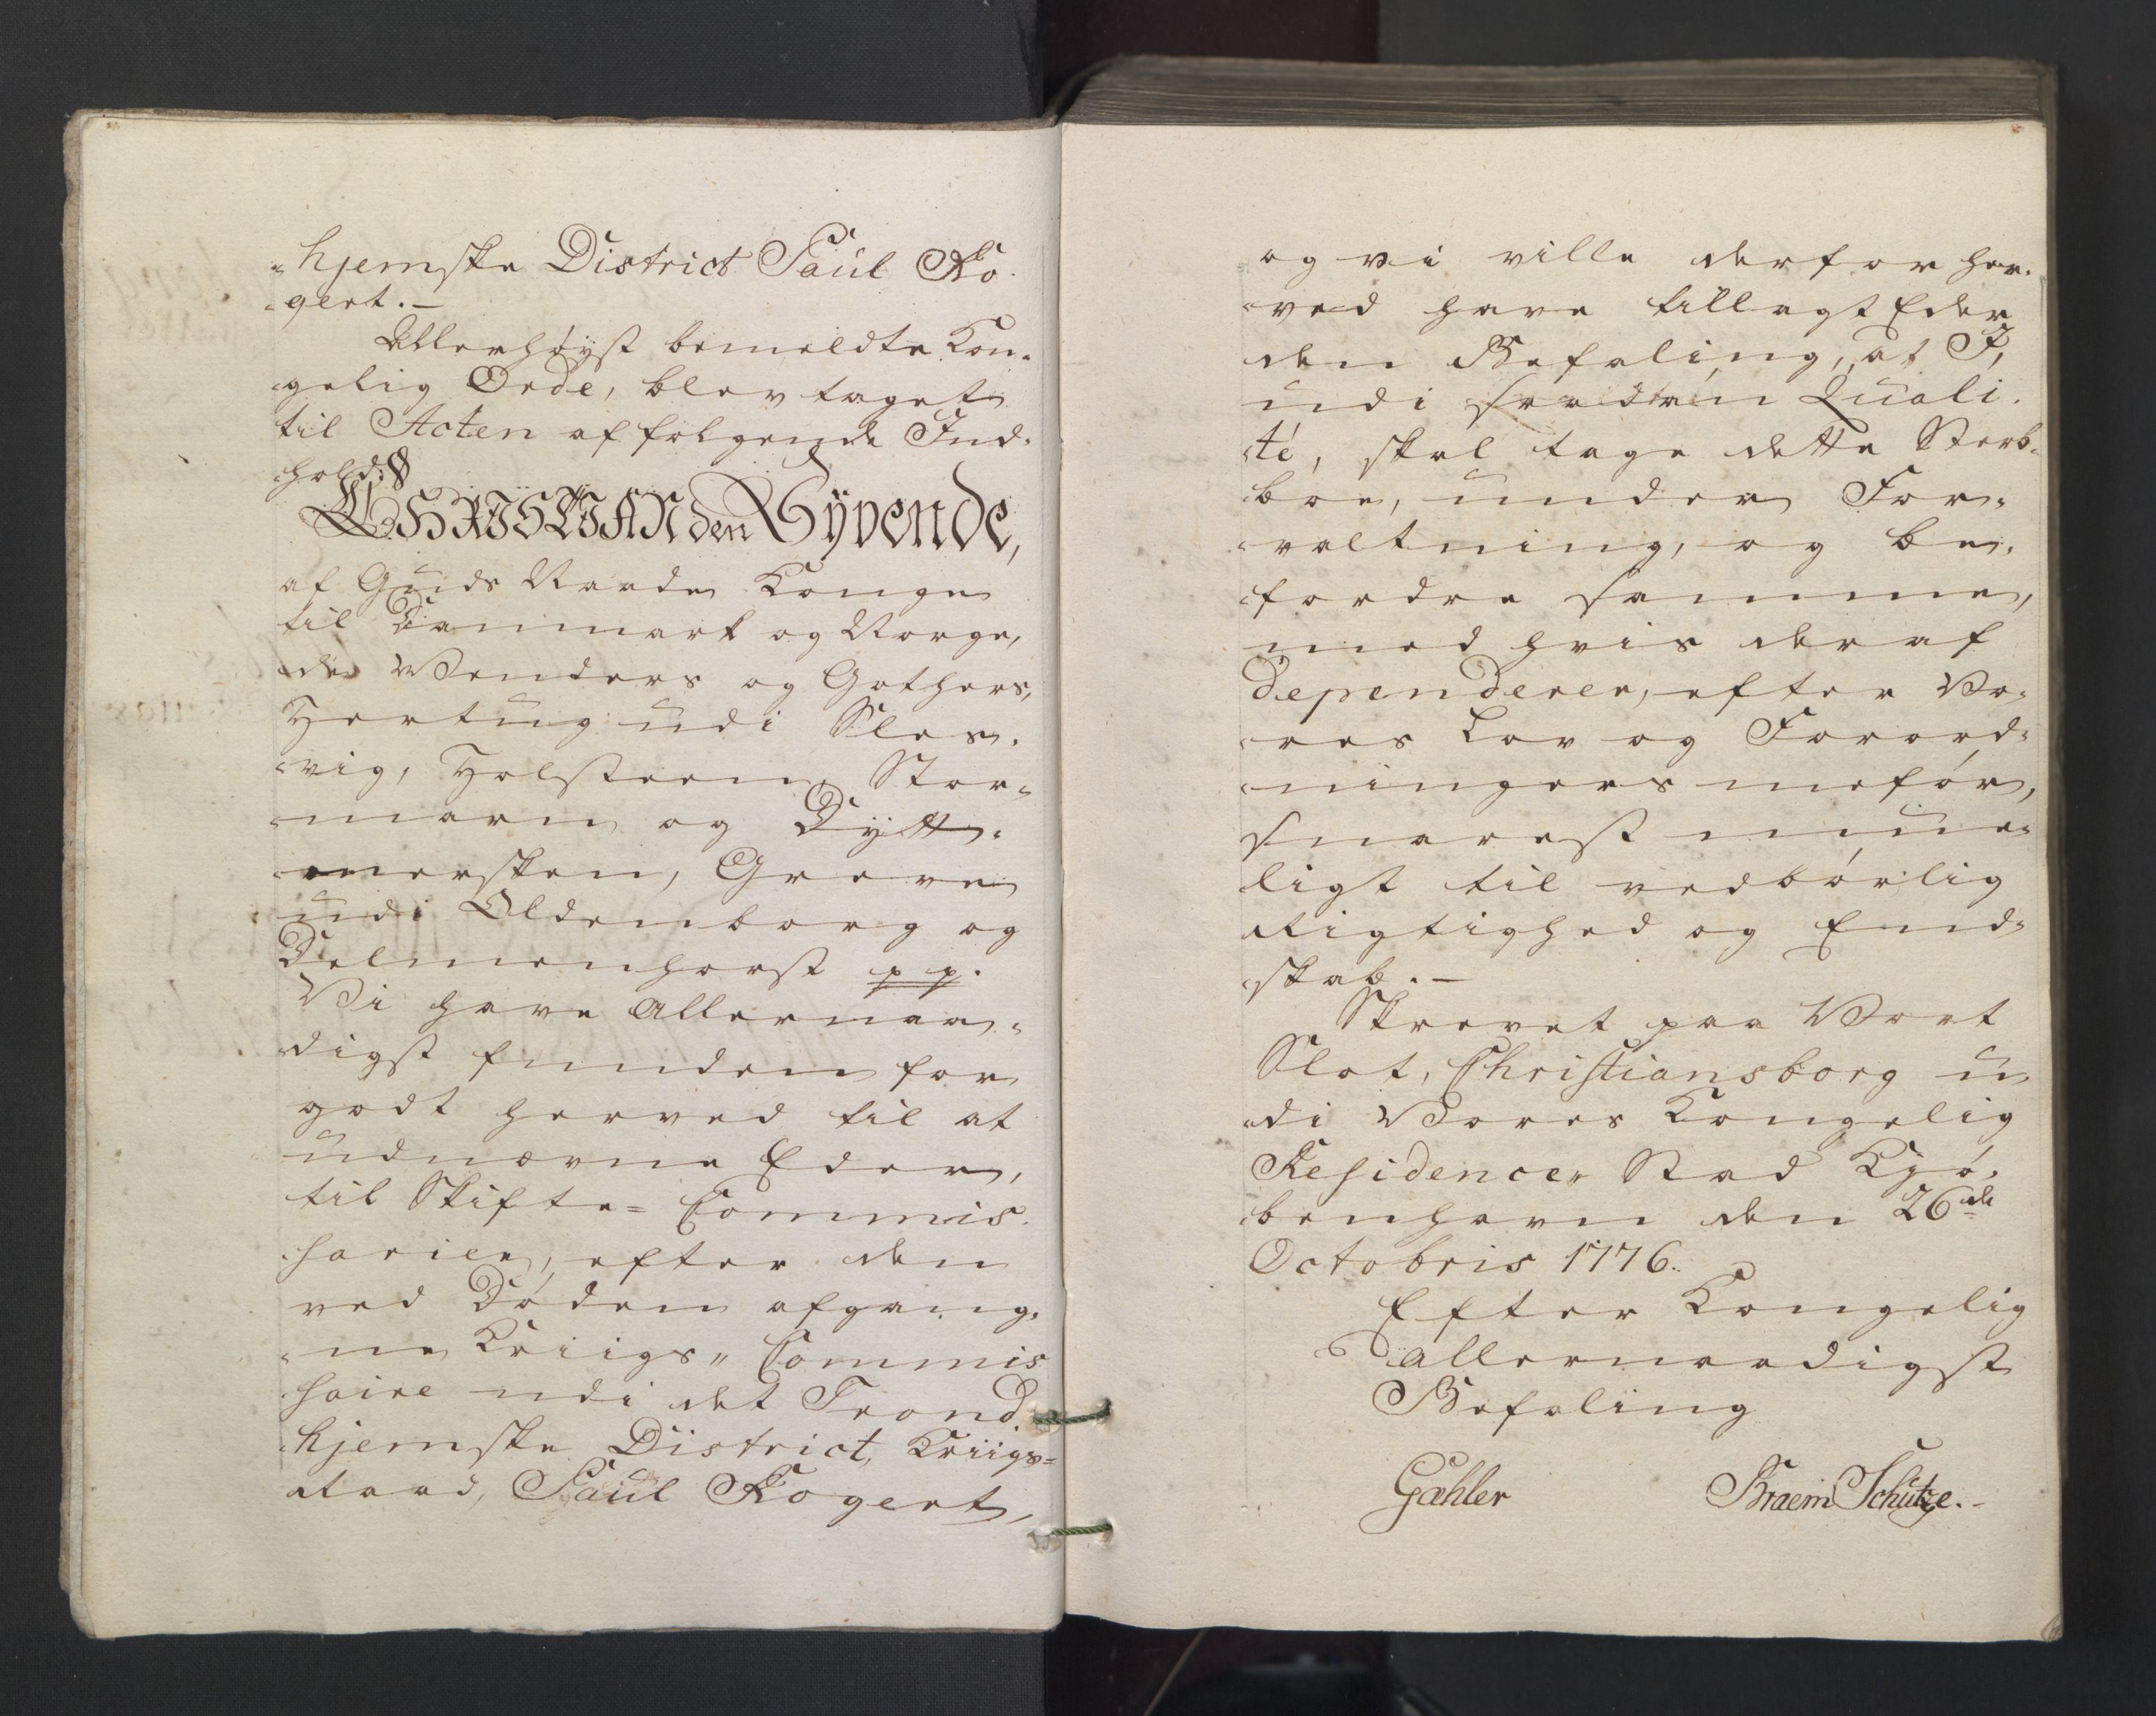 „hjemske District Paul Ro„
„gert.—
Allerhøyst bemeldte Kon„
„gelig Orde, blev taget
til Acten af følgende Ind„
„hold:
CHRISTIAN den Syvende,
af Guds Naade Konge
til Danmark og Norge,
de Venders og Gothers,
Hertug udi Sles„
„vig, Holsteen, Stor„
„marn og Dytt„
„mersken, Greve
udi Oldenborg og
Delmenhorst pp.
Vi have Allernaa„
„digst funden for
godt herved til at
udnævne Eder,
til Skifte= Commis„
„sarier, efter den
ved Døden afgang„
„ne Kriigs„ Commis
„saire udi det Trond„
„hjemske District, Kriigs=
„Raad, Paul Rogert,
og vi ville derfor her„
„ved have tillagt Eder
den Befaling, at I,
udi saadan Quali„
„té, skal tage dette Sterb„
„boe, under For„
„valtning, og be„
„fordre samme,
med hvis deraf
dependerer, efter Vo„
„res Lov og Forord„
„ningers medfør,
snarest mue„
„ligt til vedbørlig
Rigtighed og End„
„skab.—
Skrevet paa Vort
Slot, Christiansborg u„
„di Vores Kongelig
Residence„ Stad Kjø„
„benhavn den 26de
Octobris 1776.
Efter Kongelig
Allernaadigst
Befaling
Gæhler Braem Schütze.-